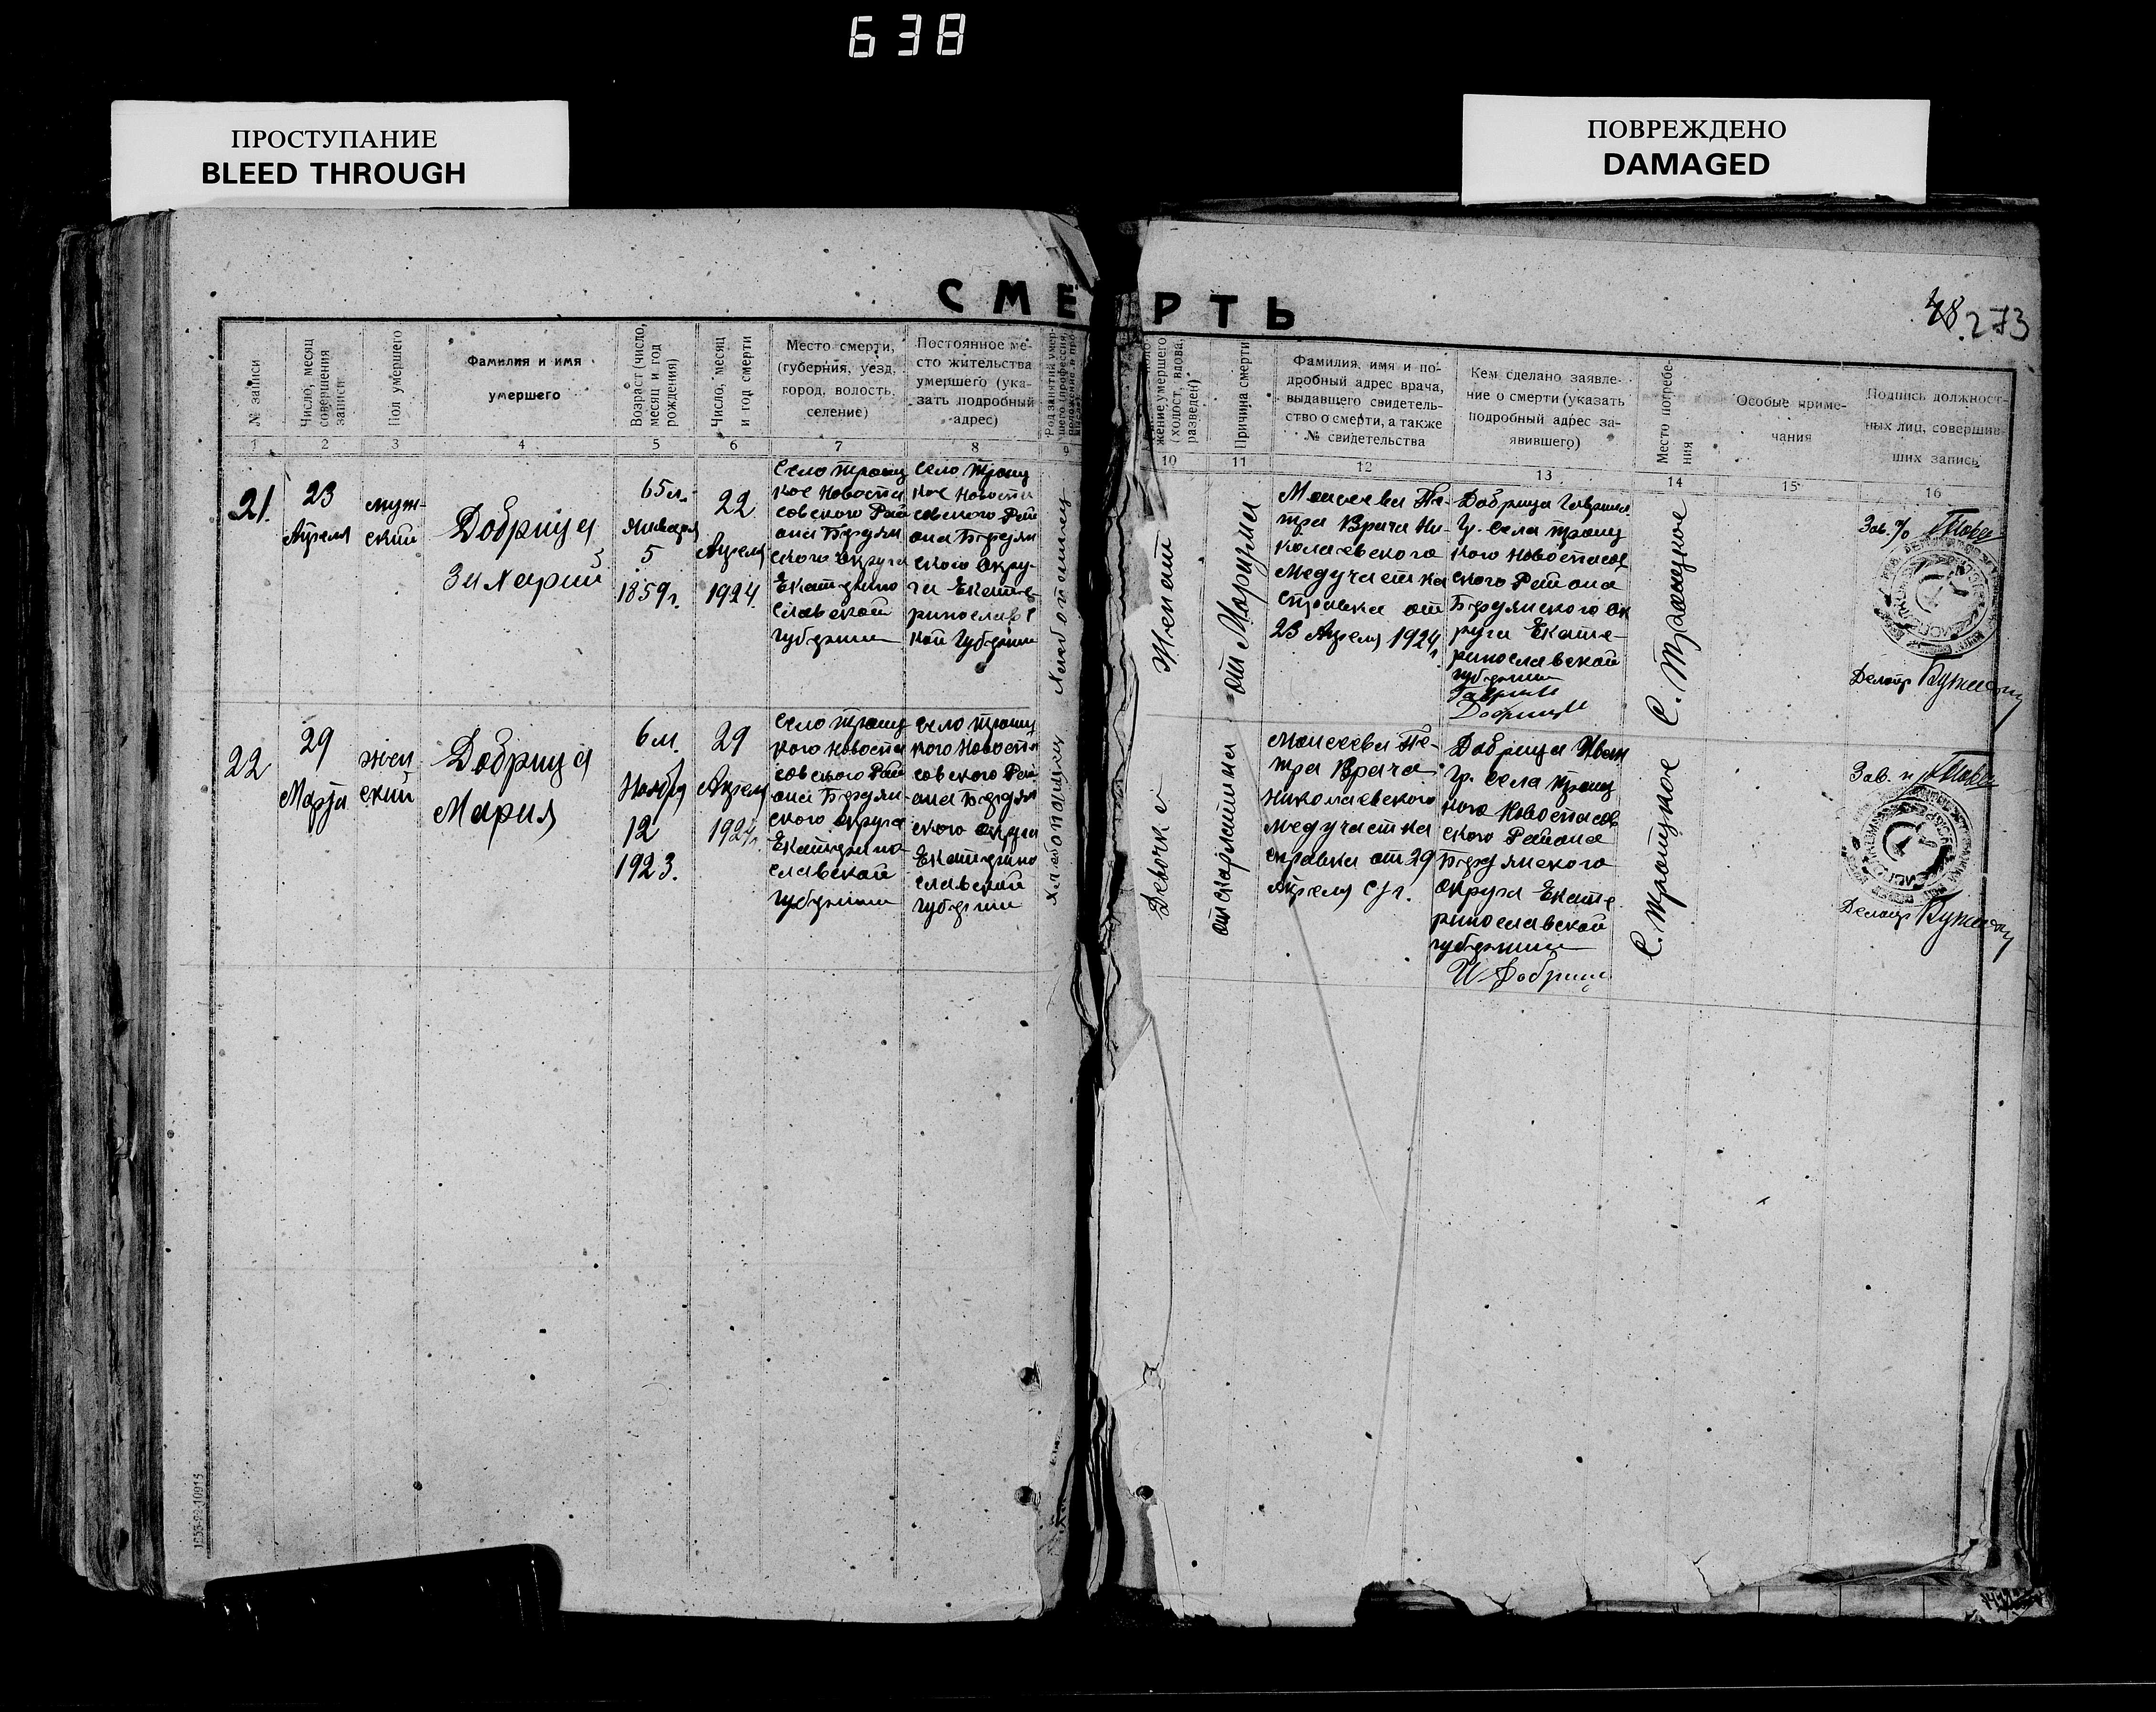 638
ПРОСТУПАНИЕ
BLEED THROUGH
ПОВРЕЖДЕНО
DAMAGED
СМЕРТЬ
48. 273
№ записи
Число, месяц
совершения
записи
Пол умершего
Фамилия и имя
умершего
Возраст (число,
месяц и год
рождения)
Число, месяц
и год смерти
Место смерти,
(губерния, уезд,
город, волость,
селение)
Постоянное ме-
сто жительства
умершего (ука-
зать подробный
адрес)
жение умершего
(холост, вдова,
разведен)
Причина смерти
Фамилия, имя и по-
дробный адрес врача,
выдавшего свидетель-
ство о смерти, а также
№ свидетельства
Кем сделано заявле-
ние о смерти (указать
подробный адрес за-
явившего)
Место погребе-
ния
Особые приме-
чания
Подпись должност-
ных лиц, совершив-
ших запись
1 2 3 4 5 6 7 8 9 10 11 12 13 14 15 16
21.
23
Апреля
муж-
ский
Добрица
Захарий
65 л.
Января
5
1859 г.
22
Апреля
1924.
Село Троиц
кое Новоспа
совского Рай
она Бердян
ского Округа
Екатерино
славской
губернии
Село Троиц
кое Новоспа
совского Рай
она Бердян
ского Окру-
га Екате-
ринославс
кой Губернии
Хлебопашец
Женат
Моисеева Пе-
тра Врача Ни-
колаевского
Медучастка
справка от
23 Апреля 1924 г.
Добрица Гавриил
Гр. села Троиц
кого Новоспасов
ского Района
Бердянского Ок
руга Екате-
ринославской
губернии
Гаврил
Добрица
С. Троицкое
Зав.
Делопр
22
29
Марта
жен
ский
Добрица
Мария
6 м.
Ноября
12
1923.
29
Апреля
1924 г.
Село Троиц
кого Новоспа
совского Рай
она Бердян-
ского округа
Екатерино
славской
губернии
село Троиц
кого Новоспа
совского Рай
она Бердян
ского округа
Екатерино
славской
губернии
Хлебопашец
Девочка
от скарлатина
Моисеева Пе-
тра Врача
Николаевского
Медучастка
справка от 29
Апреля с/г.
Добрица Иван
Гр. села Троиц
кого Новоспасов
ского Района
Бердянского
округа Екате
ринославской
губернии
И Добрица
С. Троицкое
Зав.
Делопр